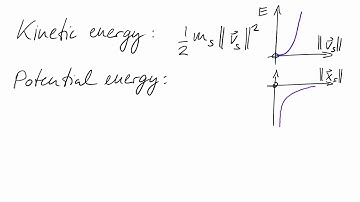 Kinetic energy: ½ mₛ ‖v⃗ₛ‖² E ‖v⃗ₛ‖
Potential energy: ‖x⃗ₛ‖